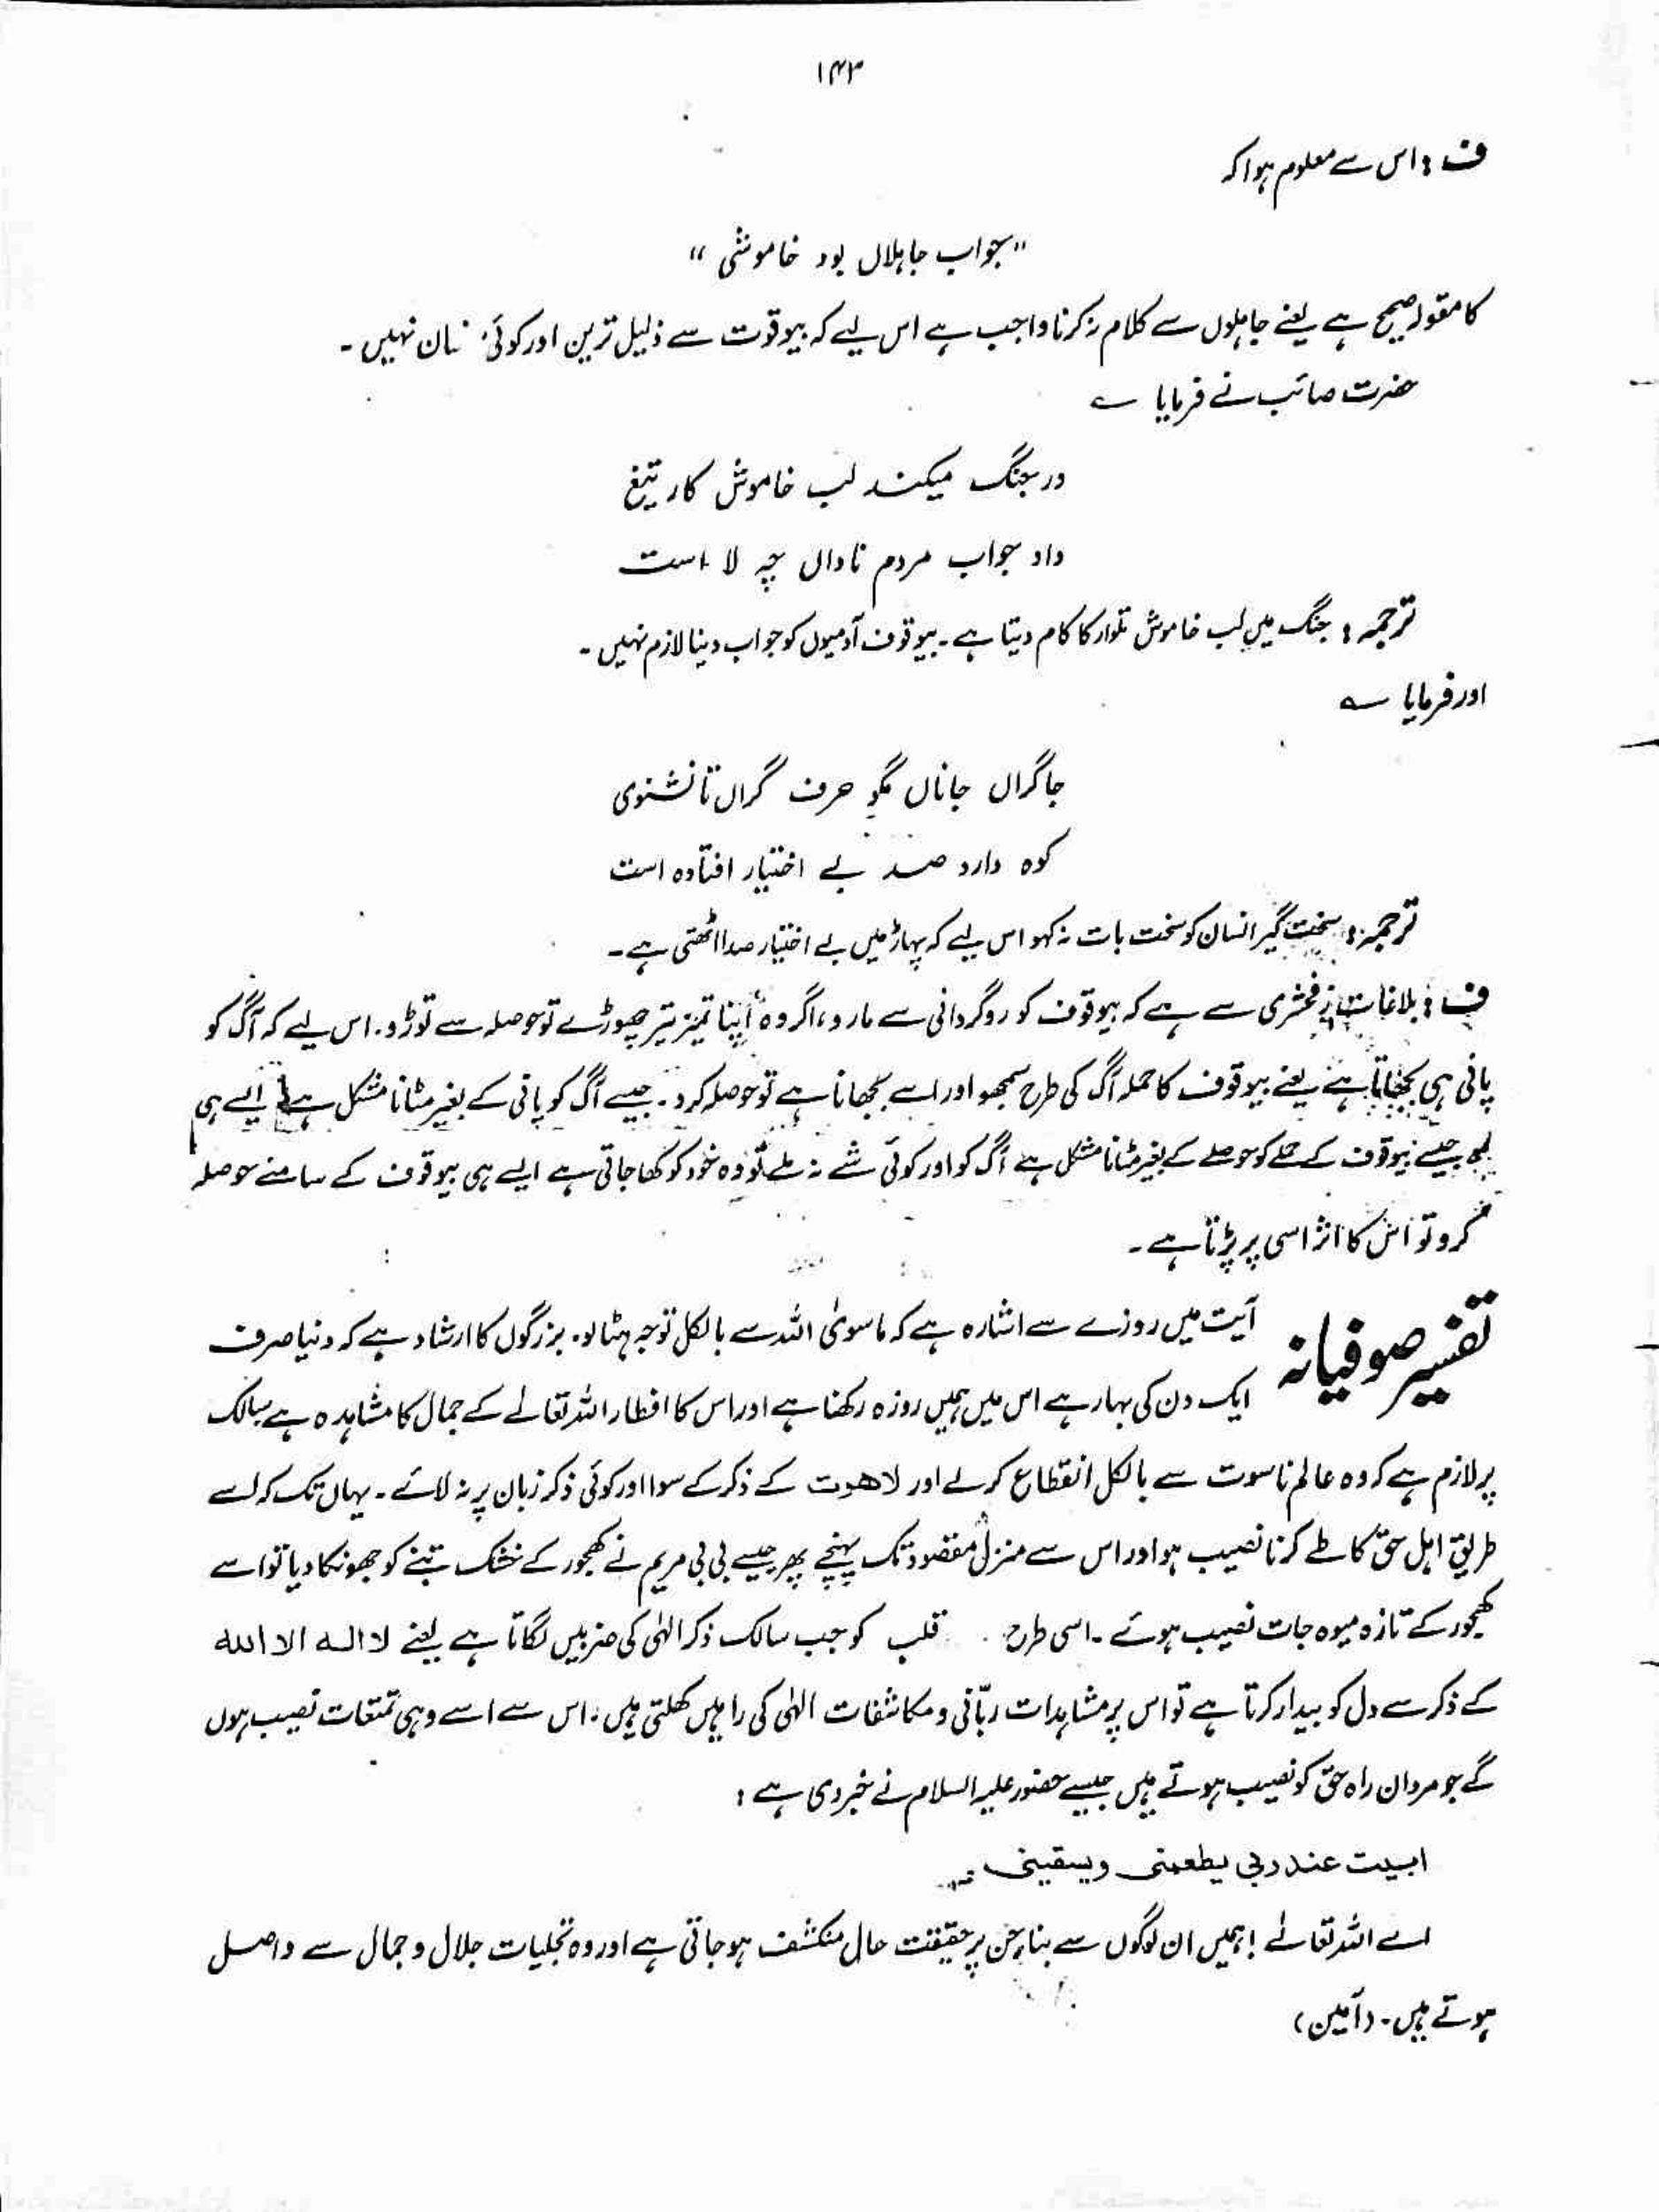 ۱۴۳
ف : اس سے معلوم ہوا کہ
"جواب جاہلاں بود خاموشی"
کا مقولہ صحیح ہے یعنے جاہلوں سے کلام نہ کرنا واجب ہے اس لیے کہ بیوقوت سے ذلیل ترین اور کوئی نہیں ۔
حضرت صائب نے فرمایا ؎
در جنگ میکند لب خاموش کار تیغ
داد جواب مردم ناداں چہ لا است
ترجمہ : جنگ میں لب خاموش تلوار کا کام دیتا ہے ۔ بیوقوف آدمیوں کو جواب دینا لازم نہیں ۔
اور فرمایا ؎
جاگراں جاناں مگو حرف گراں تا نشنوی
کوہ دارد صد بے اختیار افتادہ است
ترجمہ : سخت گیر انسان کو سخت بات نہ کہو اس لیے کہ پہاڑ میں بے اختیار صدا اٹھتی ہے ۔
ف : بلاغات زمخشری سے ہے کہ بیوقوف کو روگردانی سے مارو ، اگر وہ اپنا تیز تیر چھوڑے تو حوصلہ سے توڑ دو ۔ اس لیے کہ آگ کو
پانی ہی بجھاتا ہے یعنے بیوقوف کا حملہ آگ کی طرح سمجھو اور اسے بجھانا ہے تو حوصلہ کرو ۔ جیسے آگ کو پانی کے بغیر مٹانا مشکل ہے ایسے ہی
جیسے بیوقوف کے حملے کو حوصلے کے بغیر مٹانا مشکل ہے آگ کو اور کوئی شے نہ ملے تو وہ خود کو کھا جاتی ہے ایسے ہی بیوقوف کے سامنے حوصلہ
کرو تو اس کا اثر اسی پر پڑتا ہے ۔
تفسیر صوفیانہ آیت میں روزے سے اشارہ ہے کہ ماسویٰ اللہ سے بالکل توجہ ہٹا لو ۔ بزرگوں کا ارشاد ہے کہ دنیا صرف
ایک دن کی بہار ہے اس میں ہمیں روزہ رکھنا ہے اور اس کا افطار اللہ تعالے کے جمال کا مشاہدہ ہے سالک
پر لازم ہے کہ وہ عالم ناسوت سے بالکل انقطاع کرلے اور لاھوت کے ذکر کے سوا اور کوئی ذکر زبان پر نہ لائے ۔ یہاں تک کہ اسے
طریق اہل حق کا طے کرنا نصیب ہو اور اس سے منزل مقصود تک پہنچے پھر جیسے بی بی مریم نے کھجور کے خشک تنے کو جھونکا دیا تو اسے
کھجور کے تازہ میوہ جات نصیب ہوئے ۔ اسی طرح قلب کو جب سالک ذکر الٰہی کی ضربیں لگاتا ہے یعنے لا الہ الا اللہ
کے ذکر سے دل کو بیدار کرتا ہے تو اس پر مشاہدات ربّانی و مکاشفات الٰہی کی راہیں کھلتی ہیں ، اس سے اسے وہی تمتعات نصیب ہوں
گے جو مردان راہ حق کو نصیب ہوتے ہیں جیسے حضور علیہ السلام نے خبر دی ہے :
ابیت عند ربی یطعمنی ویسقینی
اے اللہ تعالٰے ! ہمیں ان لوگوں سے بنا جن پر حقیقت حال منکشف ہو جاتی ہے اور وہ تجلیات جلال و جمال سے واصل
ہوتے ہیں ۔ (آمین)